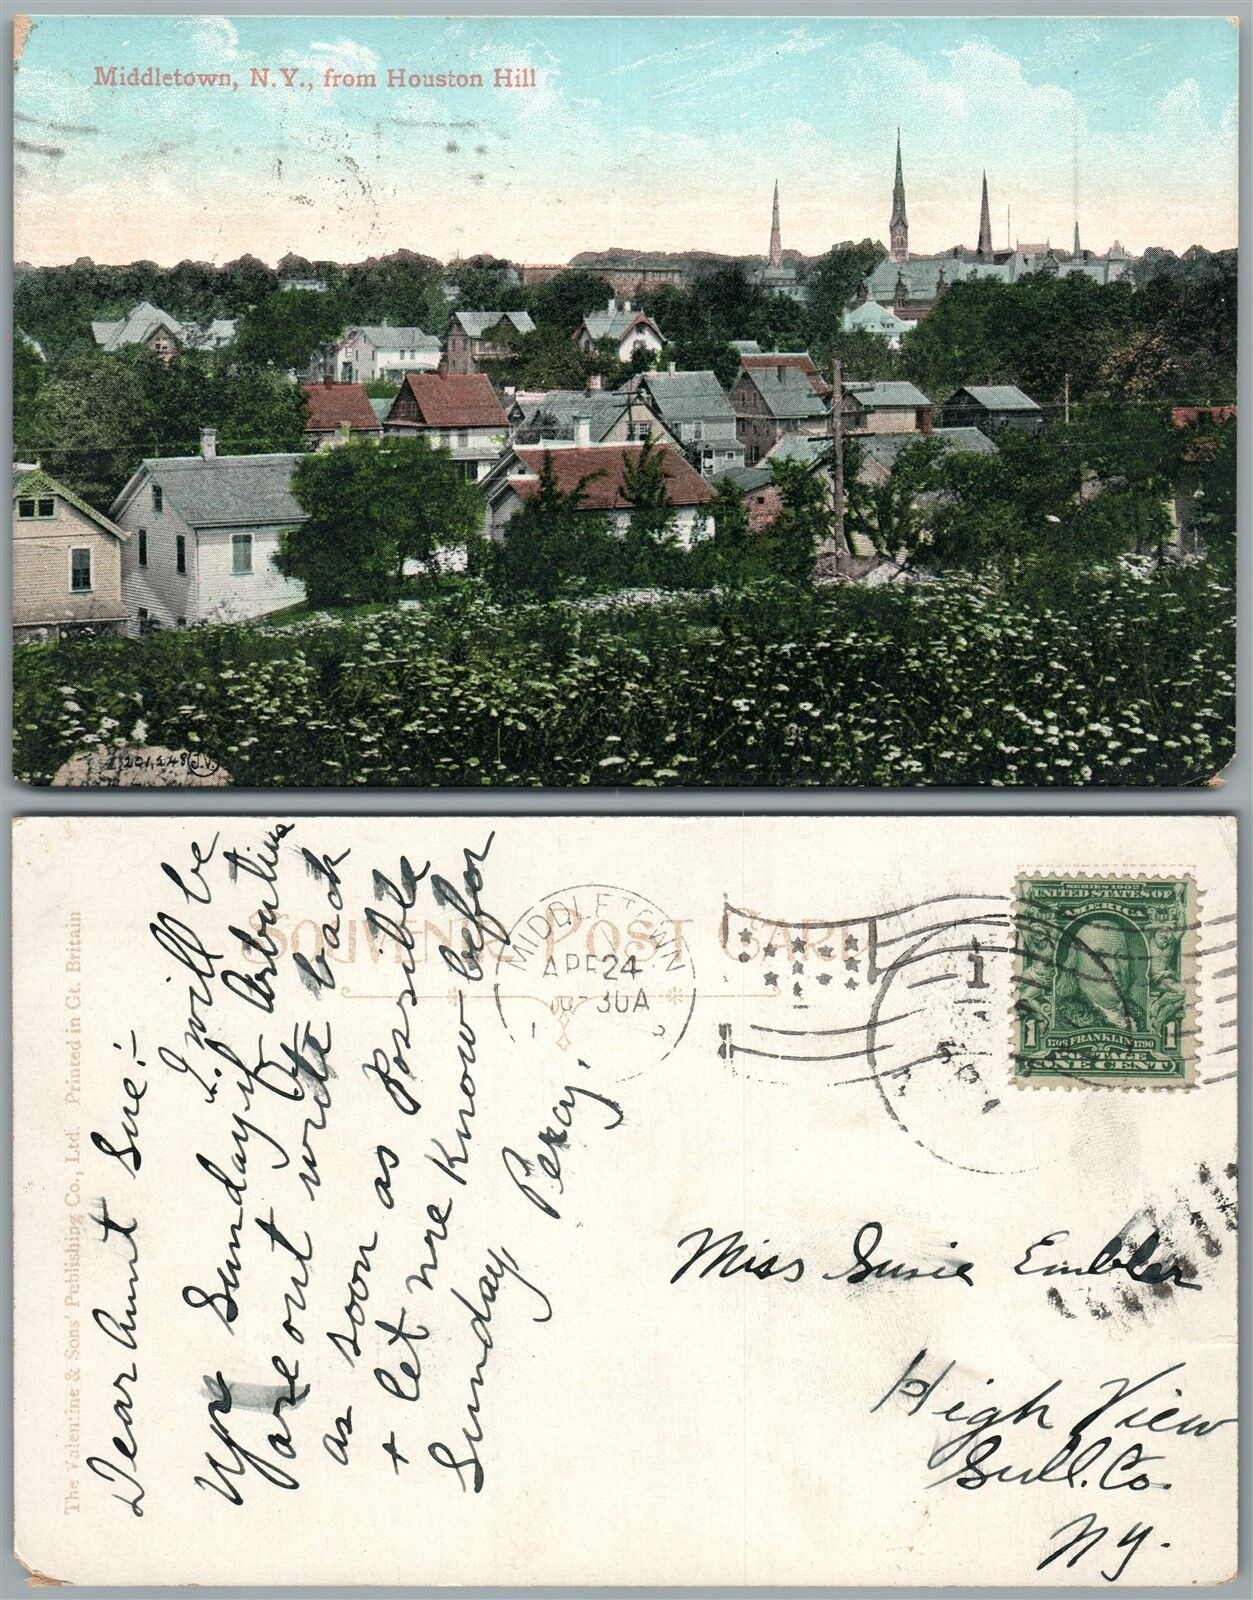 Middletown, N.Y., from Houston Hill
201,248 (J.V.)
The Valentine & Sons' Publishing Co., Ltd. Printed in Gt. Britain
SOUVENIR POST CARD
MIDDLETOWN N.
APR 24
10-30A
SERIES 1902
UNITED STATES OF
AMERICA
1 1
1706 FRANKLIN 1790
POSTAGE
ONE CENT
1
Dear Aunt Sue:-
I will be
up Sunday if Arbutius
are out write back
as soon as Possible
+ let me know befor
Sunday
Percy.
Miss Susie Embler
High View
Sull. Co.
NY.